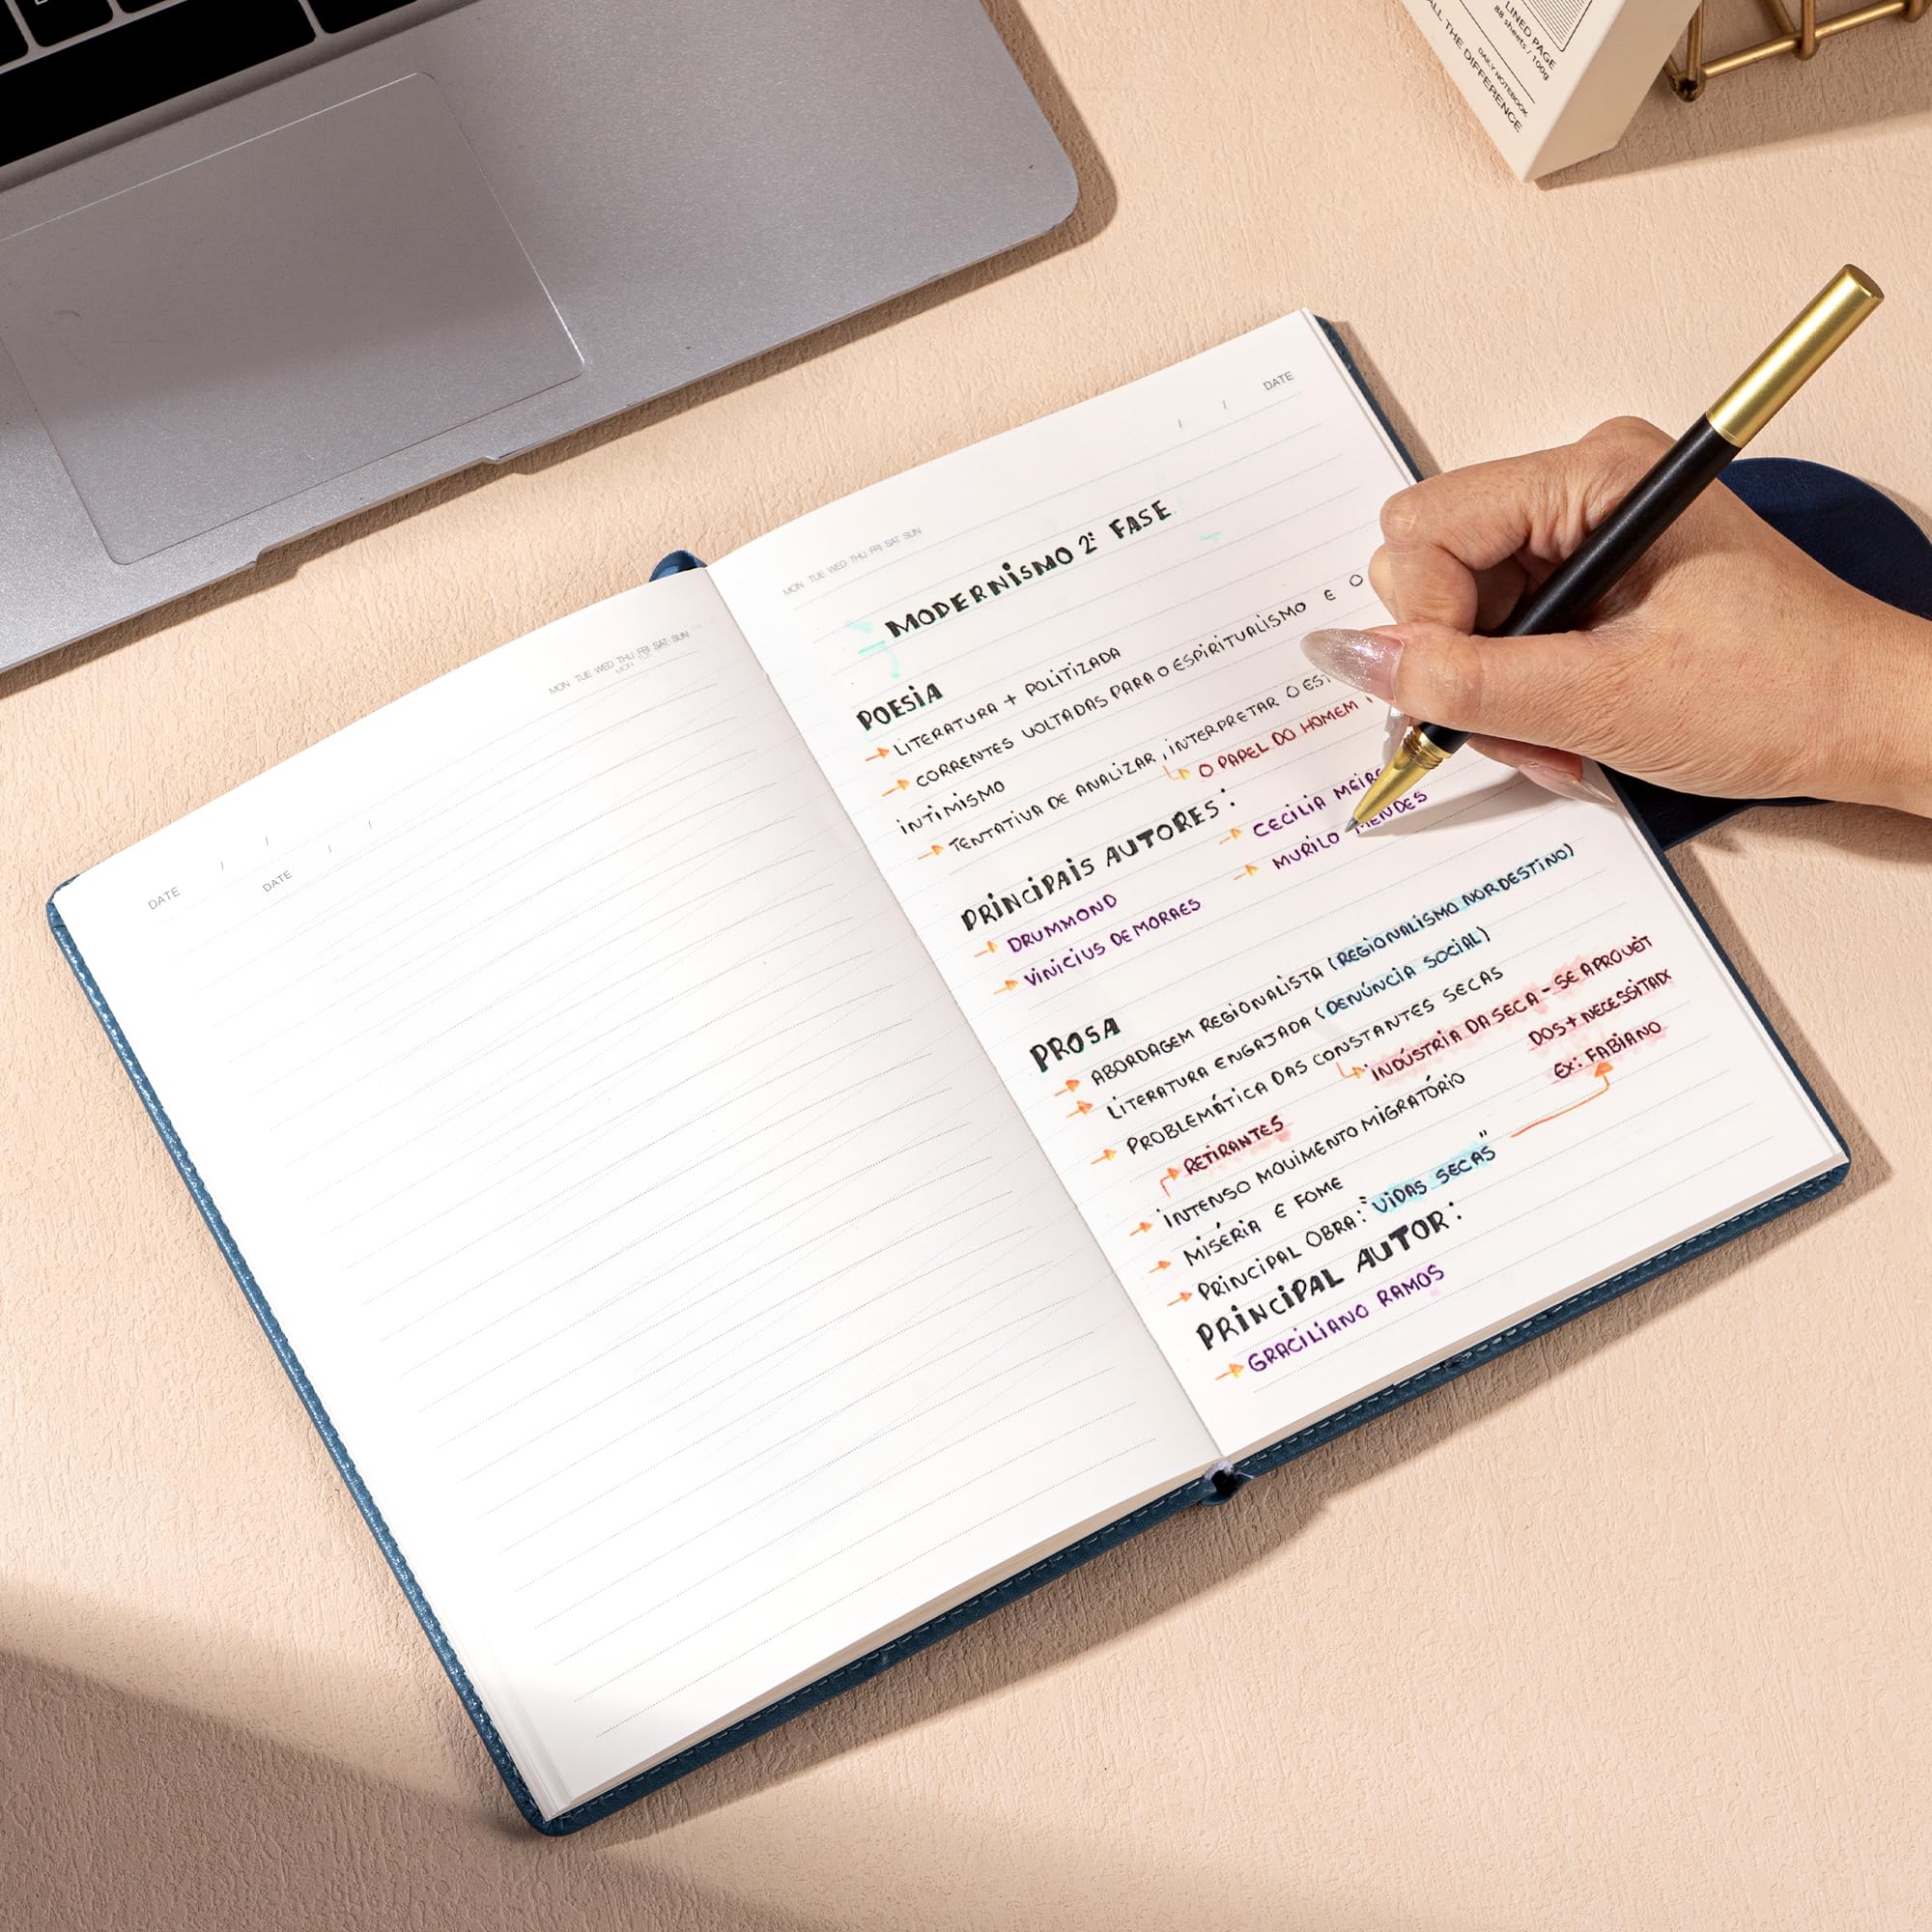 LINED PAGE
88 sheets / 100g
DAILY NOTEBOOK
ALL THE DIFFERENCE
MON TUE WED THU FRI SAT SUN
DATE / /
DATE / /
MON TUE WED THU FRI SAT SUN
/ / DATE
MODERNISMO 2ª FASE
POESIA
→ LITERATURA + POLITIZADA
→ CORRENTES VOLTADAS PARA O ESPIRITUALISMO E O
INTIMISMO
→ TENTATIVA DE ANALIZAR, INTERPRETAR O
↳ O PAPEL DO HOMEM
PRINCIPAIS AUTORES:
→ DRUMMOND
→ VINICIUS DE MORAES
→ CECILIA
→ MURILO MENDES
PROSA
→ ABORDAGEM REGIONALISTA (REGIONALISMO NORDESTINO)
→ LITERATURA ENGAJADA (DENÚNCIA SOCIAL)
→ PROBLEMÁTICA DAS CONSTANTES SECAS
↳ INDÚSTRIA DA SECA - SE
DOS +
EX: FABIANO
RETIRANTES
→ INTENSO MOVIMENTO MIGRATÓRIO
→ MISÉRIA E FOME
→ PRINCIPAL OBRA: "VIDAS SECAS"
PRINCIPAL AUTOR:
→ GRACILIANO RAMOS